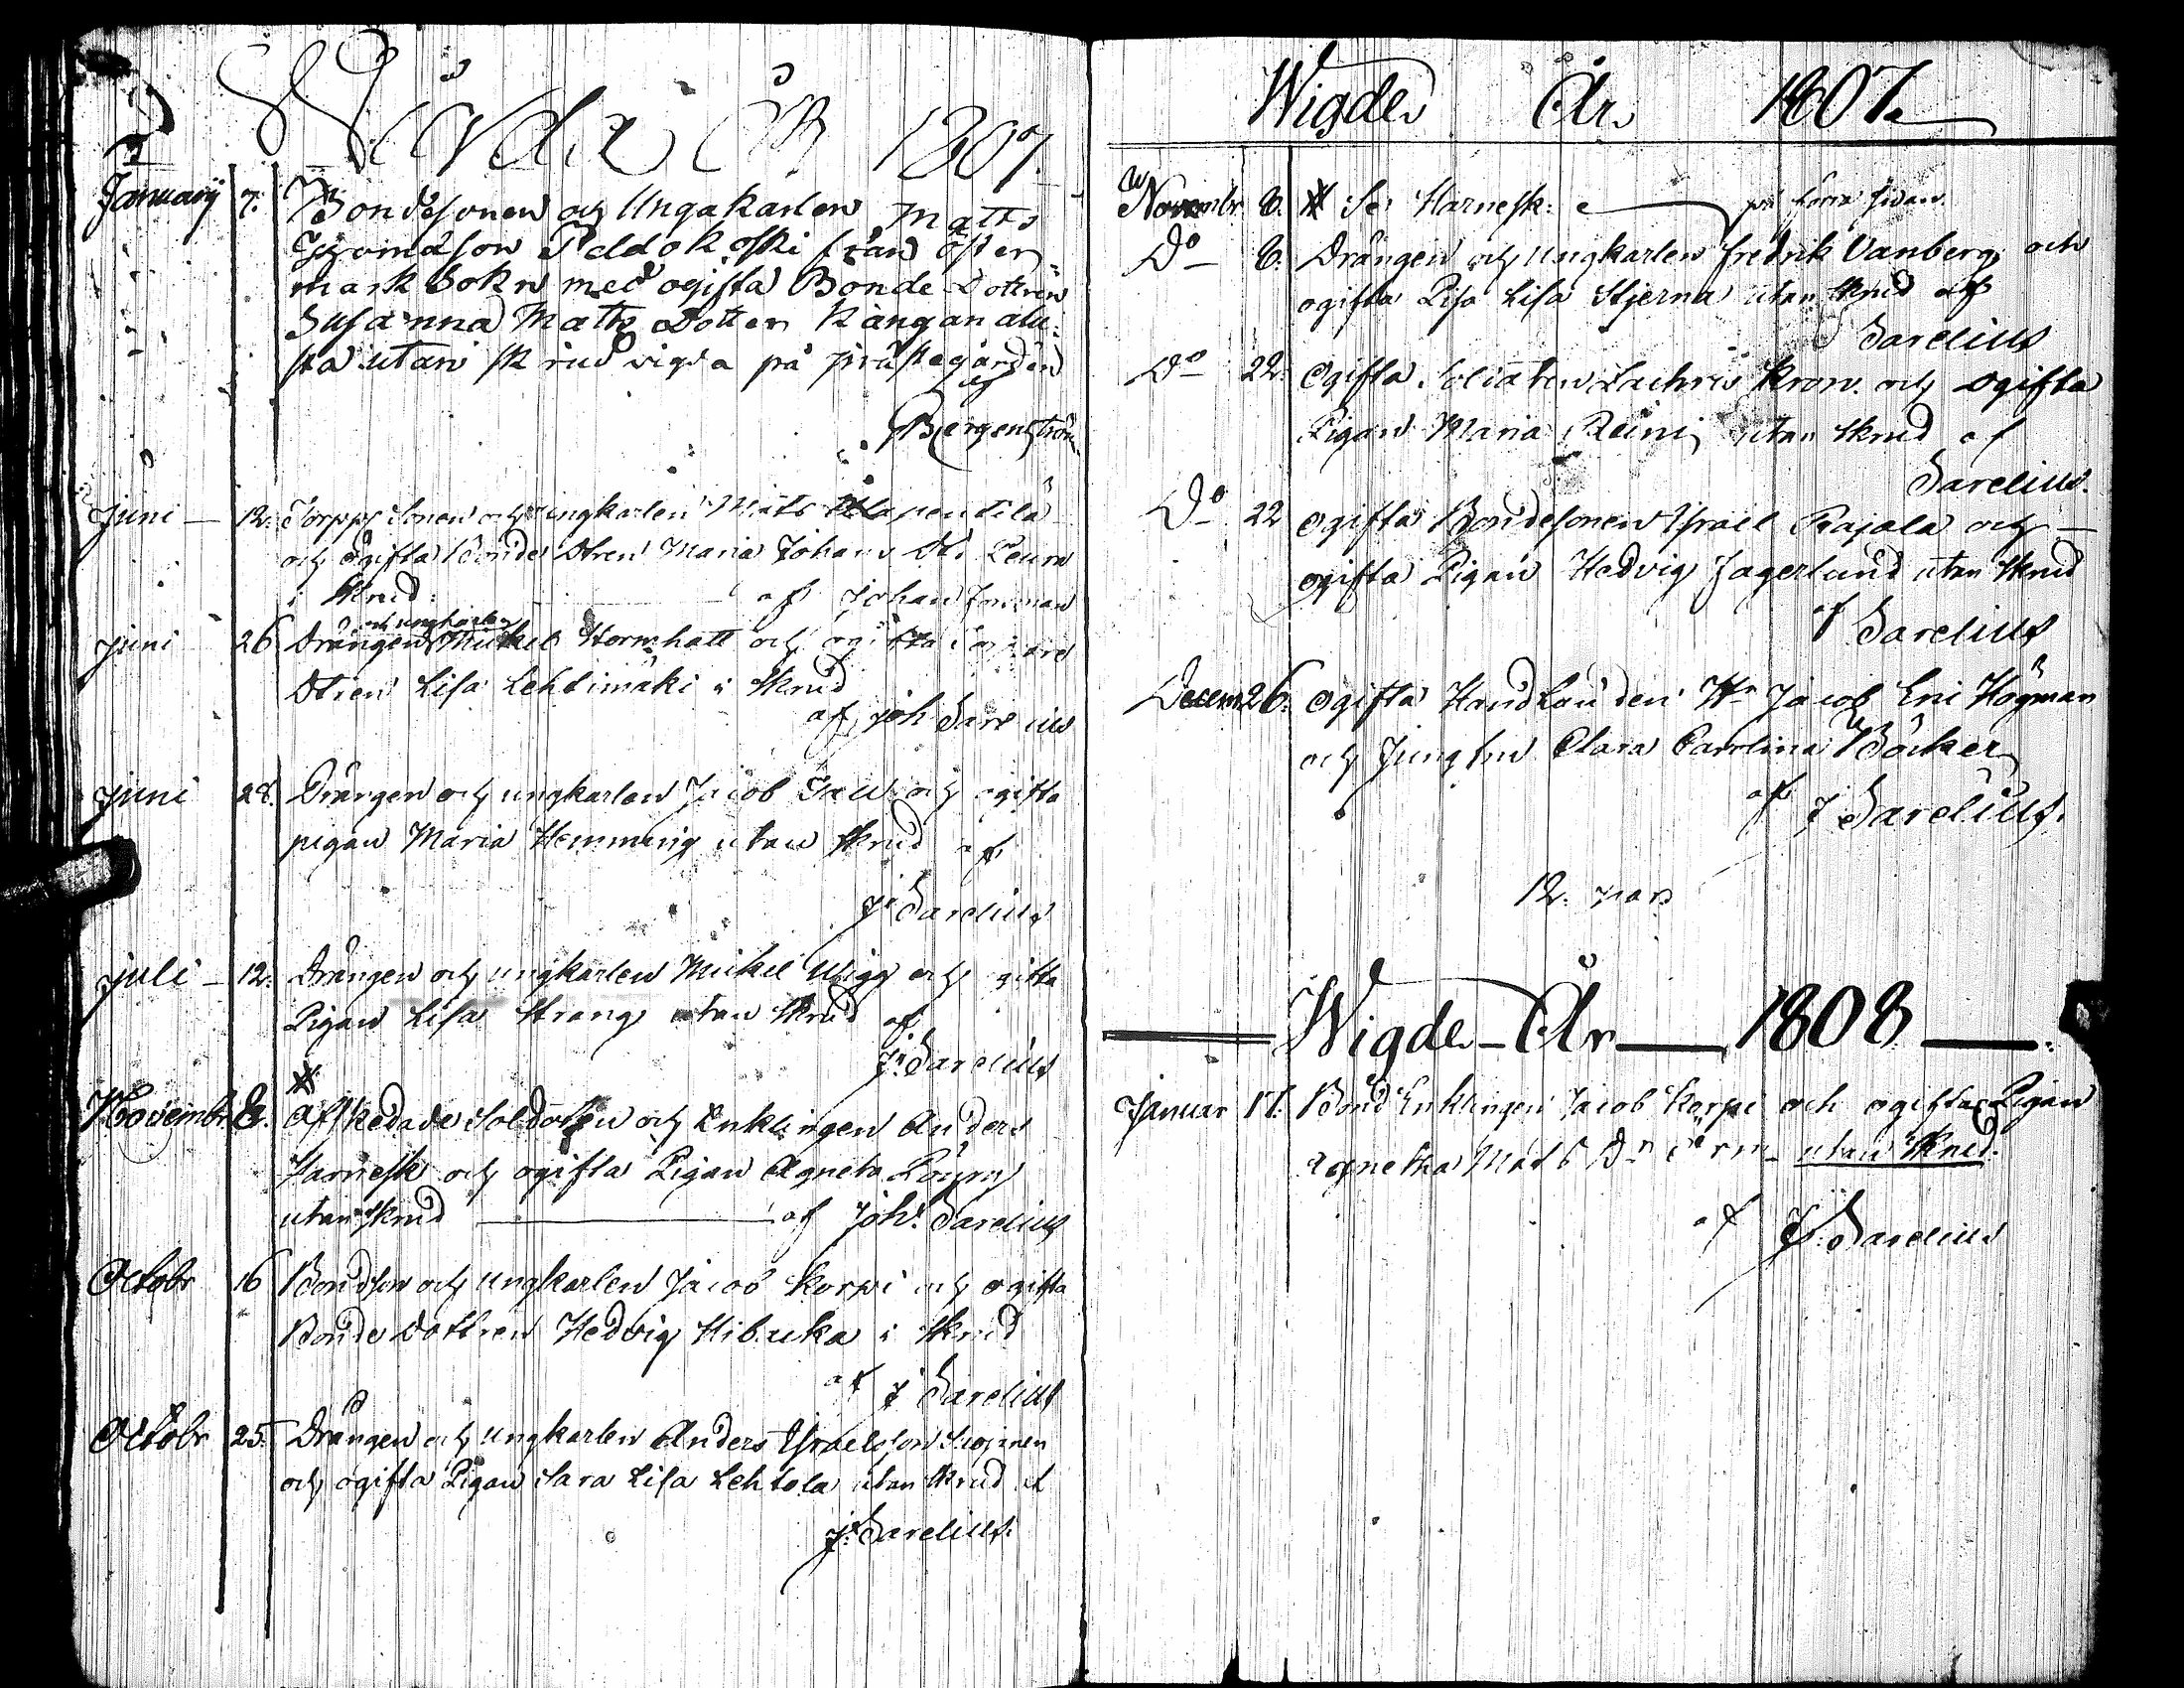 Wigda År 1807.
Januarij 7. Bondesonen och Ungakarlen Matts
Peldokoski från Öster-
mark Sokn med ogifta Bonde Dottren
Susanna Matts Dotter Kangan alu-
sta utan skrud vigda på prästegården
af
Bergenström
Juni — 12. Torpp Sonen och ungkarlen Mats
och Ogifta Bonde Dtren Maria Johans Dtr Peura
i Skrud. af Johan Forsman
och ungkarlen
Juni 26 Drängen Mickel Stormhatt och ogifta
Dtren Lisa Lehtimäki i Skrud
af Joh Sarelius
Juni 28. Drängen och ungkarlen Jacob och ogifta
pigan Maria Hemming utan Skrud af
J. Sarelius
Juli — 12. Drängen och ungkarlen Mickel Wigg och ogifta
Pigan Lisa Strang utan Skrud af
J. Sarelius
Novembr. 8. Afskedade Soldaten och Enklingen Anders
Harnesk och ogifta Pigan Agneta
utan Skrud — af Joh. Sarelius
Octobr 16 Bondson och ungkarlen Jacob Korpi och ogifta
Bonde Dottren Hedvig Hibuka i Skrud
af J Sarelius
Octobr 25. Drängen och ungkarlen Anders Israelsson
och ogifta Pigan Sara Lisa Lehtola utan Skrud af
J. Sarelius.
Wigde År 1807
Novembr 8. Se Harnesk — på förra sidan
Do — 8. Drängen och ungkarlen Fredrik Vanberg och
ogifta Lisa Stjerna utan Skrud af
Sarelius
Do 22. Ogifta Soldaten Kron. och ogifta
Pigan Maria Reini utan Skrud af
Sarelius.
Do 22 ogifta Bondesonen Israel Rajala och —
ogifta Pigan Hedvig Jagerlund utan Skrud
af Sarelius
Decem 26. ogifta Handlanden Hr Jacob Eric Högman
och Jungfru Clara Carolina Böcker
af J Sarelius.
12. par
Wigde — År — 1808 —
Januar 17. Bond Enklingen Jacob Korpi och ogifta Pigan
Agnetha Mats Dr utan Skrud.
af J. Sarelius